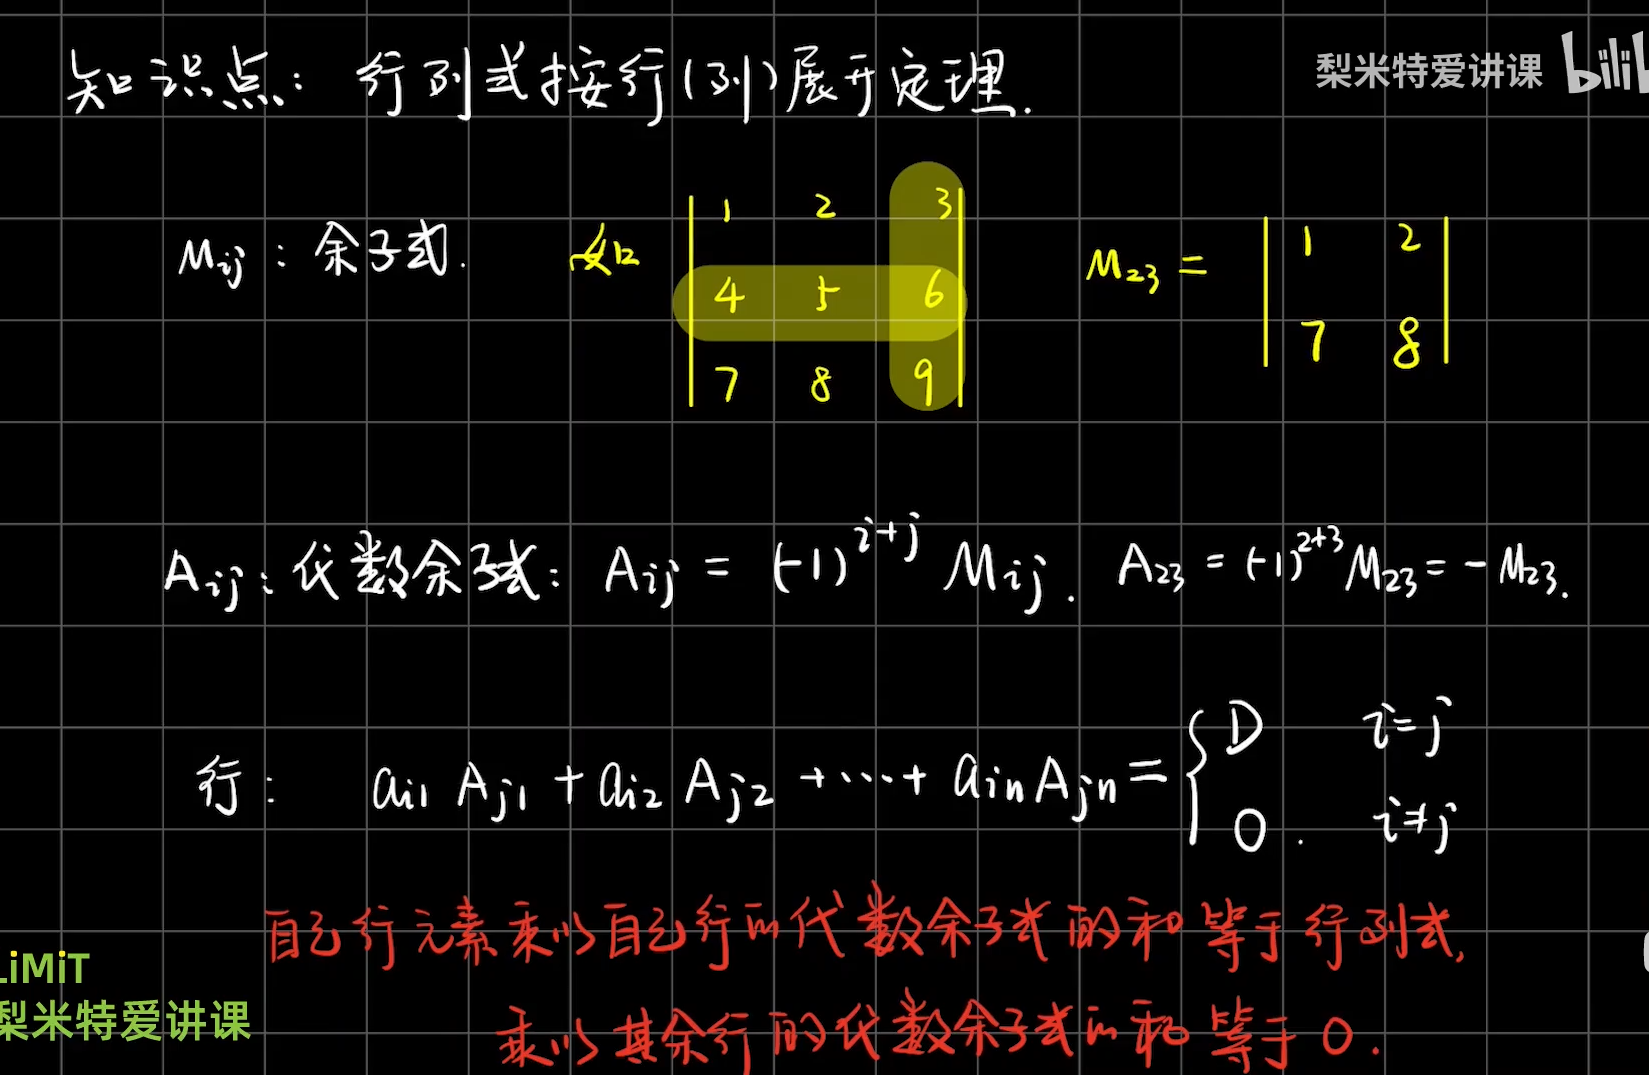 知识点：行列式按行(列)展开定理.
梨米特爱讲课 bili
Mij：余子式. 如
1 2 3
4 5 6
7 8 9
M23 =
1 2
7 8
Aij：代数余子式：Aij = (-1)^{i+j} Mij. A23 = (-1)^{2+3} M23 = -M23.
行： ai1 Aj1 + ai2 Aj2 + ... + ain Ajn = { D i=j
0. i≠j
自己行元素乘以自己行的代数余子式的和等于行列式,
LiMiT
梨米特爱讲课
乘以其余行的代数余子式的和等于0.